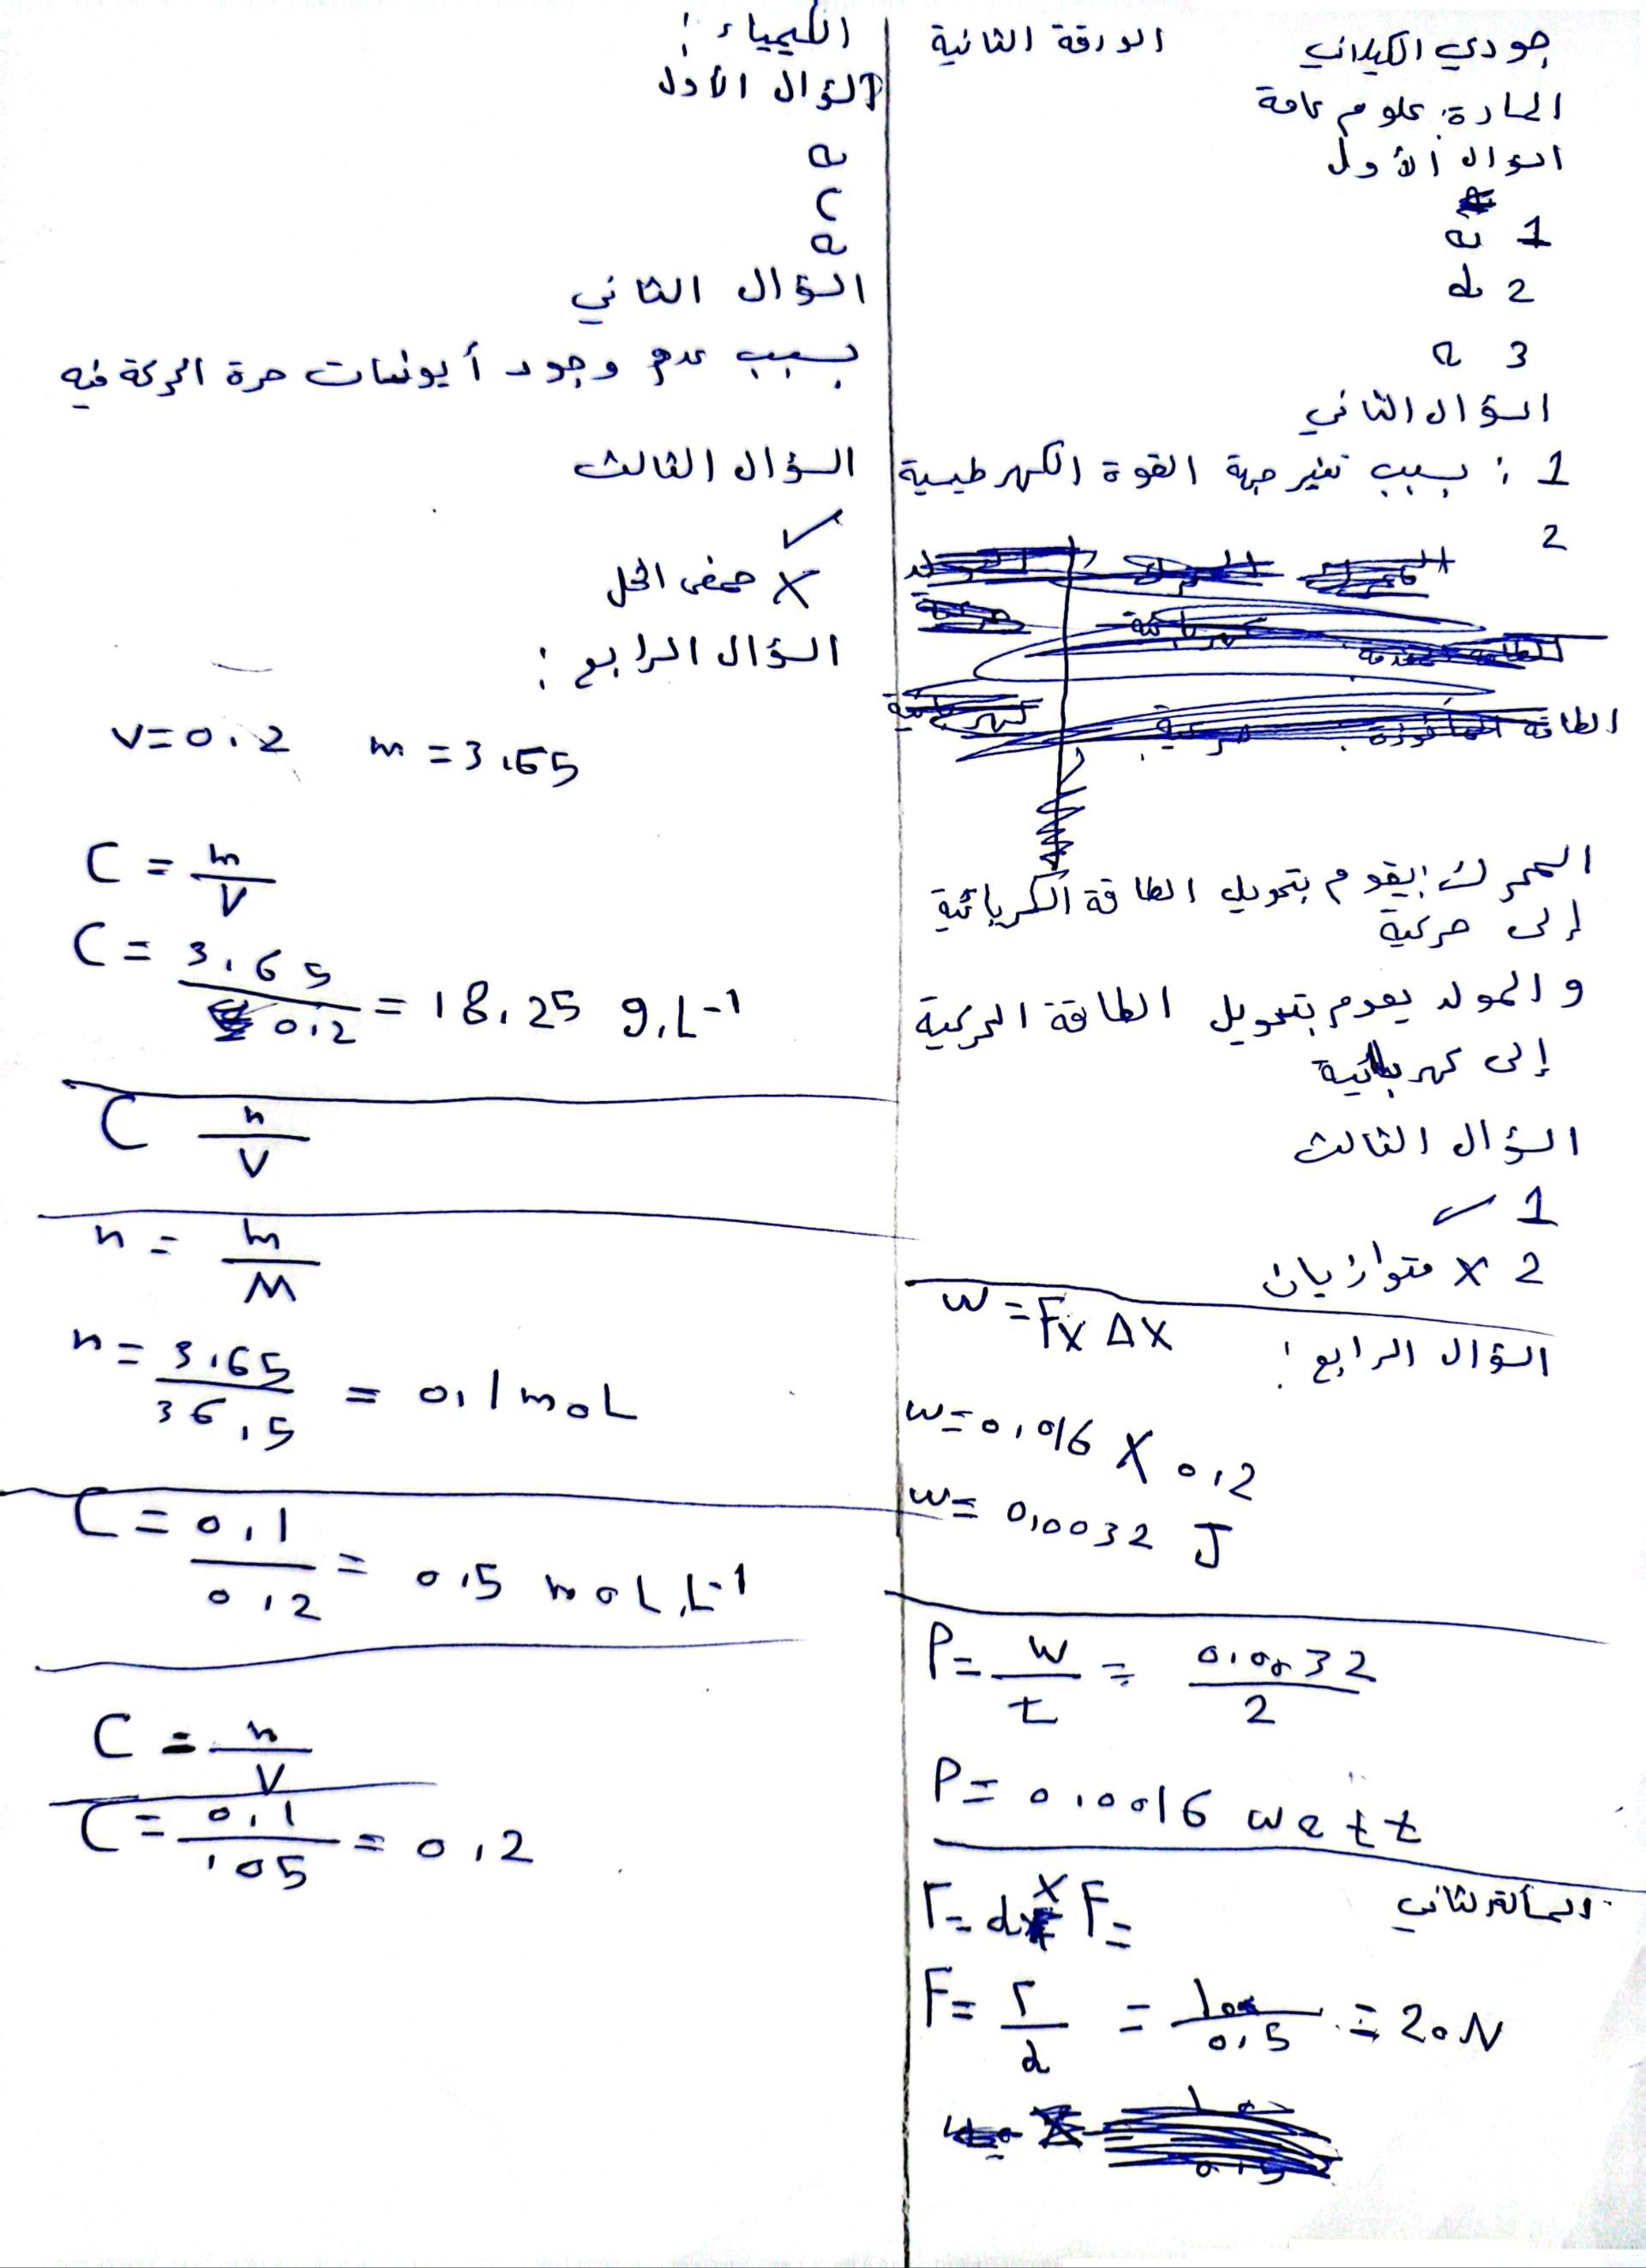 جودي الكيلاني
الورقة الثانية
المادة: علوم عامة
السؤال الأول
1 a
2 d
3 a
السؤال الثاني
1 : بسبب تغير جهة القوة الكهرطيسية
2
المحرك: يقوم بتحويل الطاقة الكربائية
إلى حركية
و المولد يقوم بتحويل الطاقة الحركية
إلى كهربائية
السؤال الثالث
1 ✓
2 X متوازيان
السؤال الرابع :
W = F x Δx
w = 0,016 X 0,2
w = 0,0032 J
P = w/t = 0,0032/2
P = 0,0016 watt
المسألة الثاني
Γ = d x F =
F = Γ/d = 10/0,5 = 20 N
الكيمياء :
السؤال الأول
a
c
a
السؤال الثاني
بسبب عدم وجود أيونات حرة الحركة فيه
السؤال الثالث
✓
X حمض الخل
السؤال الرابع :
v = 0,2 m = 3,65
C = m/V
C = 3,65/0,2 = 18,25 g.L-1
C n/V
n = m/M
n = 3,65/36,5 = 0,1 moL
C = 0,1/0,2 = 0,5 moL.L-1
C = n/V
C = 0,1/,05 = 0,2